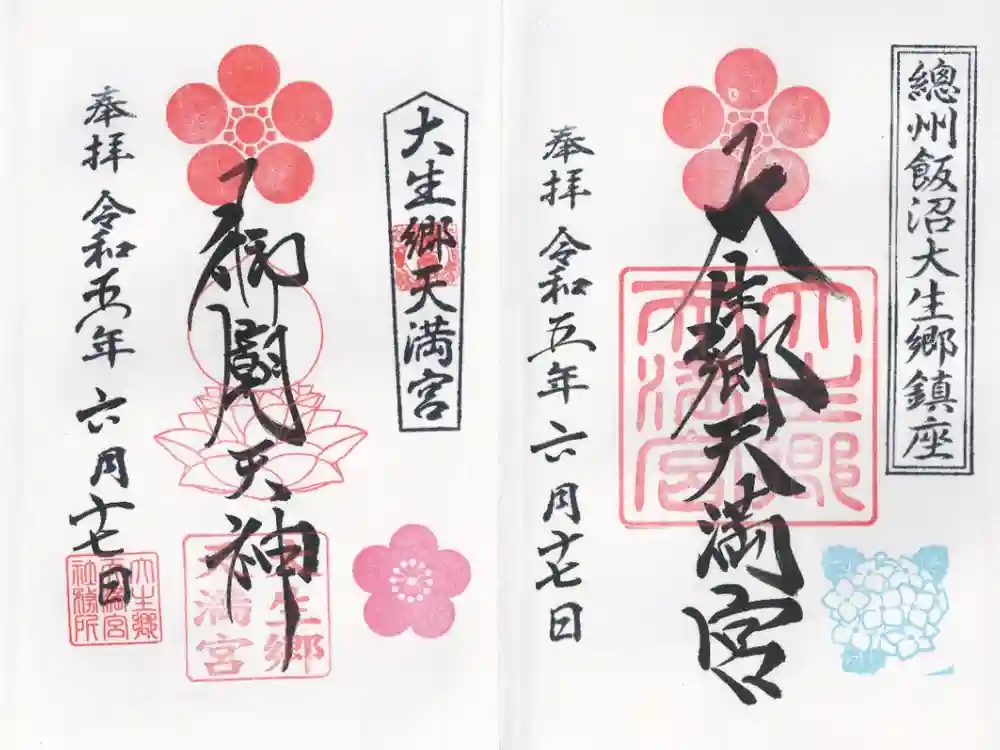 總州飯沼大生郷鎮座
大生郷天満宮
大生郷天満宮
奉拝 令和五年六月十七日
大生郷天満宮
御闢天神
奉拝 令和五年六月十七日
大生郷
天満宮
大生郷
天満宮
社務所